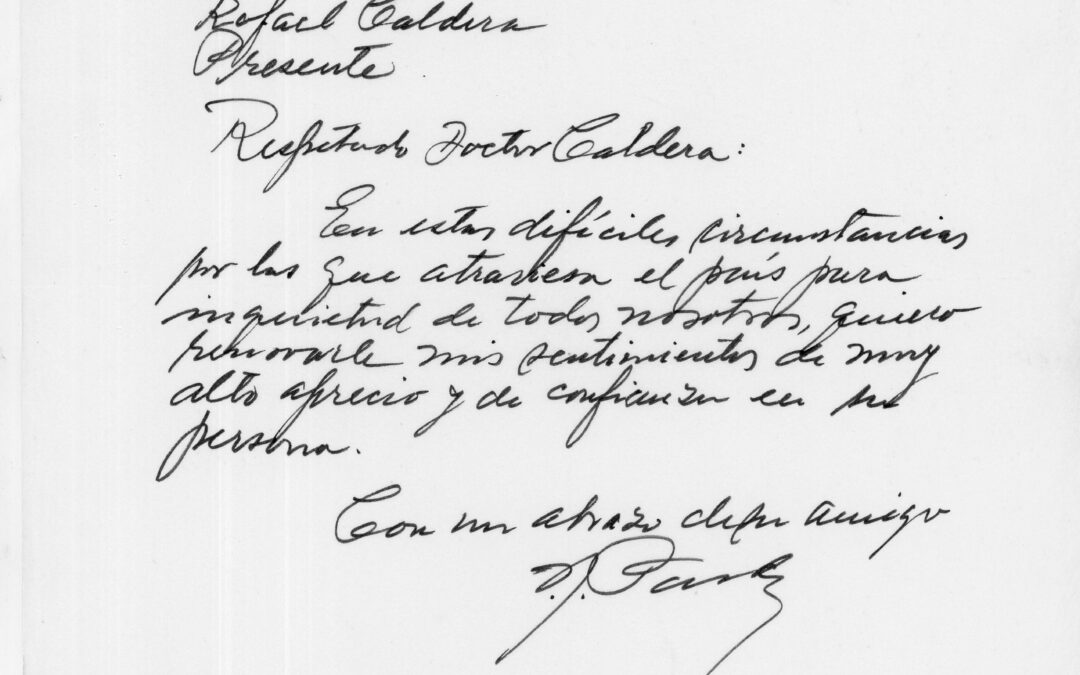 Rafael Caldera
Presente
Respetado Doctor Caldera:
En estas difíciles circunstancias
por las que atraviesa el país para
inquietud de todos nosotros, quiero
renovarle mis sentimientos de muy
alto aprecio y de confianza en su
persona.
Con un abrazo de su amigo